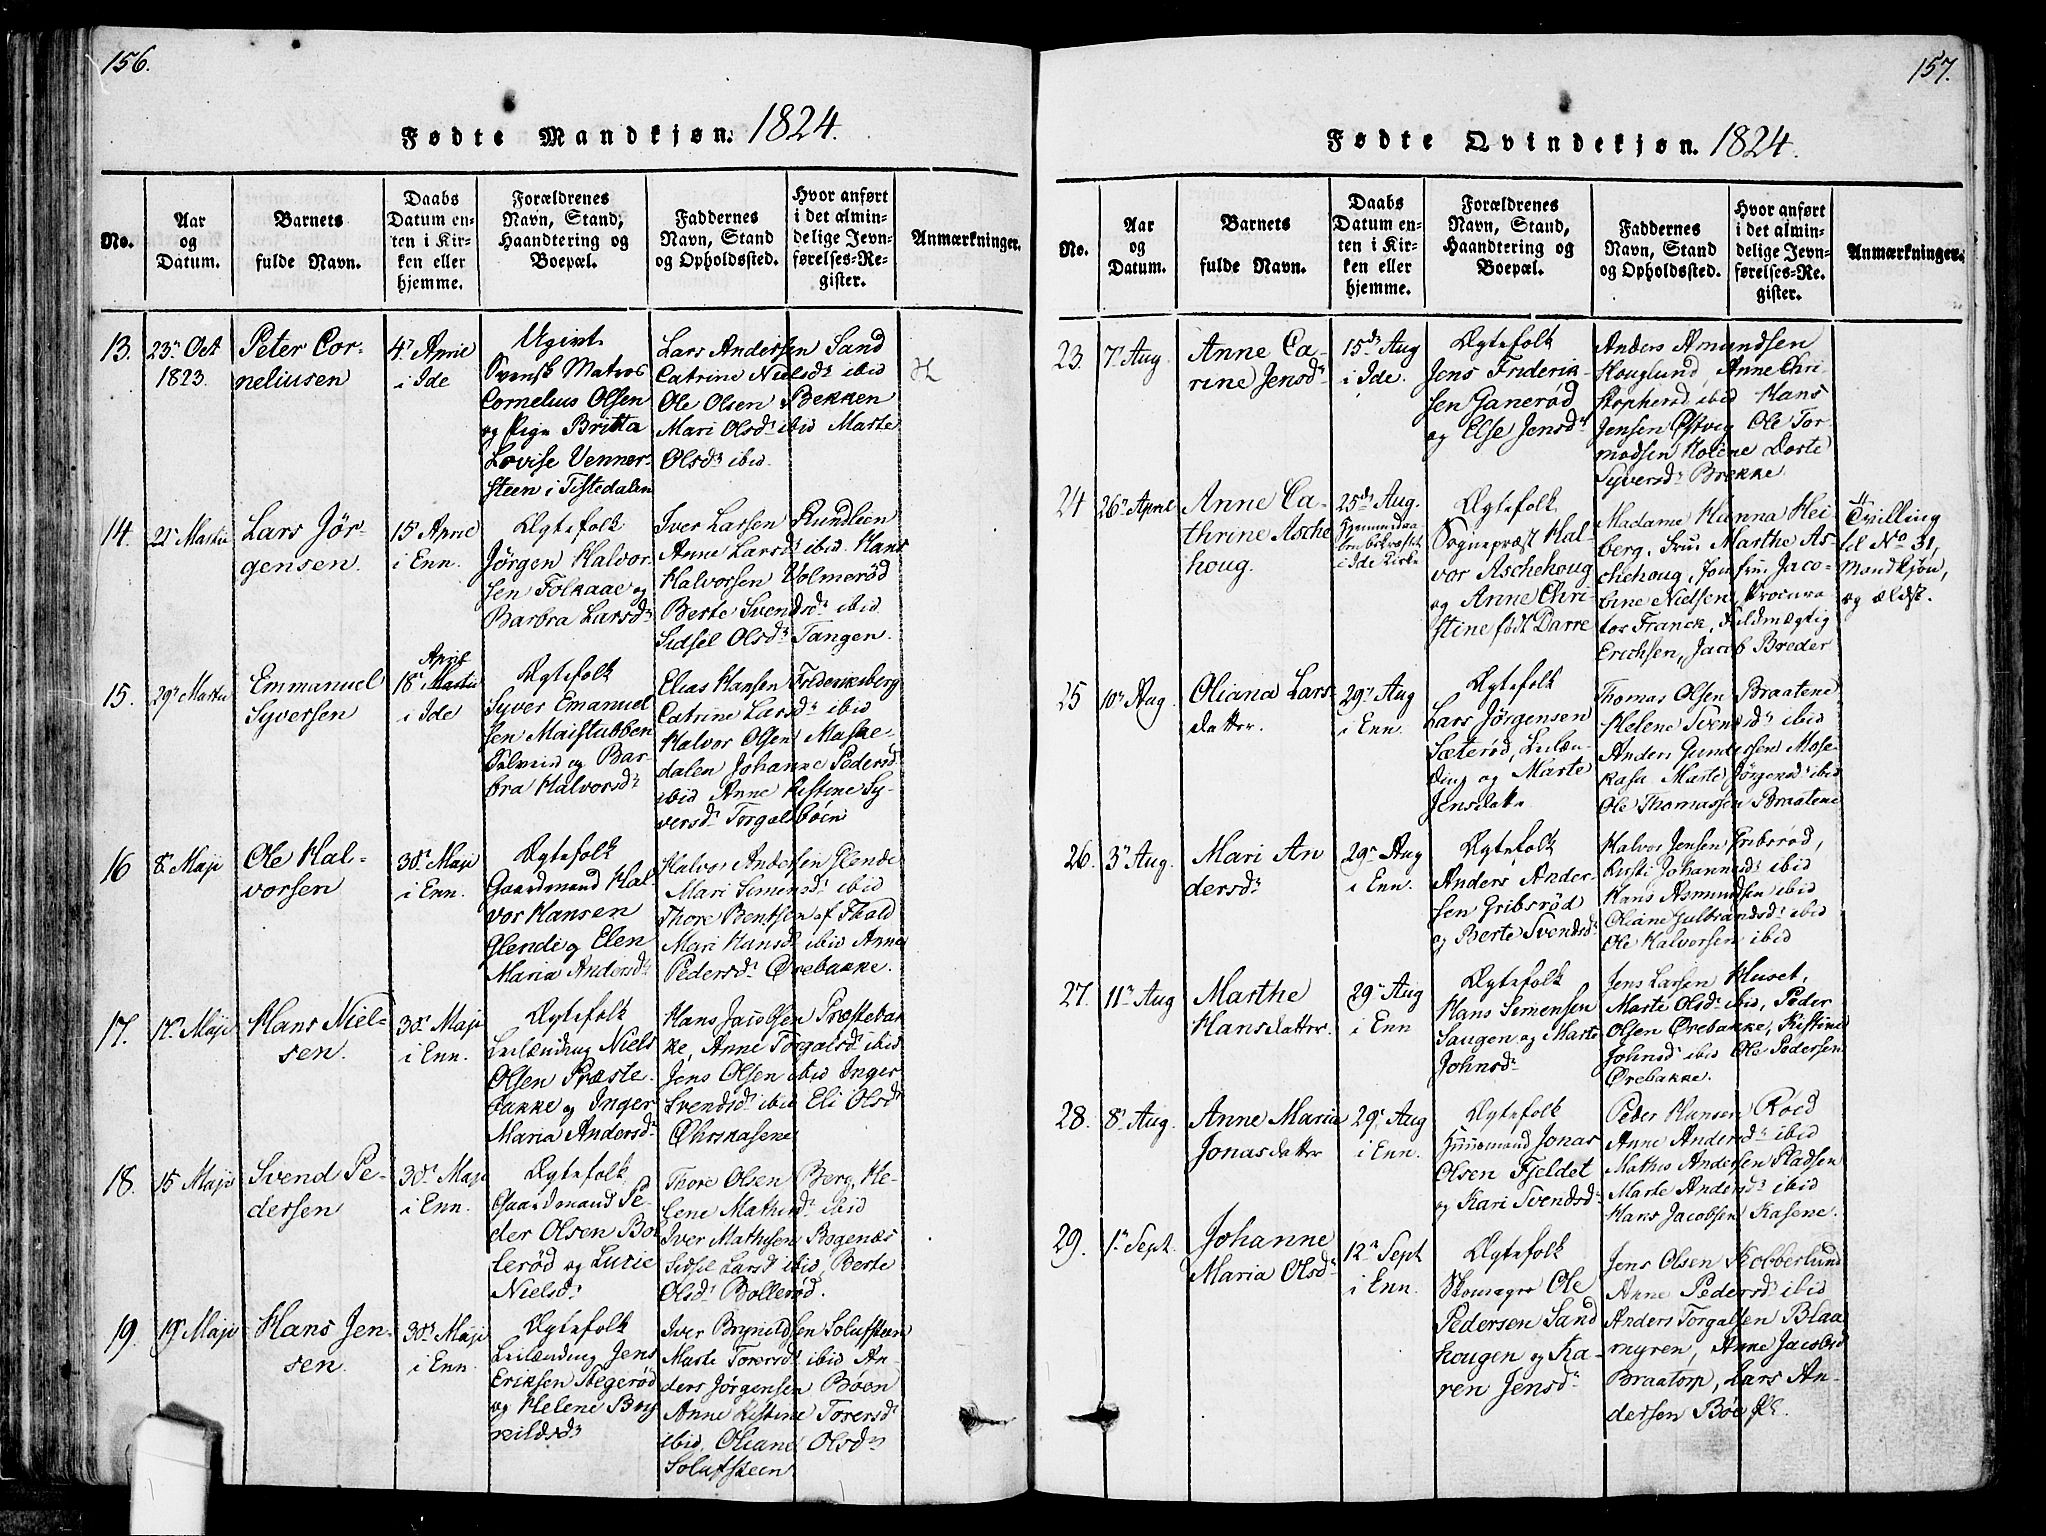 156.
Fødte Mandkjøn. 1824.
No.
Aar
og
Datum.
Barnets
fulde Navn.
Daabs
Datum en-
ten i Kir-
ken eller
hjemme.
Forældrenes
Navn, Stand,
Haandtering og
Boepæl.
Faddernes
Navn, Stand
og Opholdssted.
Hvor anført
i det almin-
delige Jevn-
førelses-Re-
gister.
Anmærkninger.
13.
23r Oct
1823.
Peter Cor-
neliusen
4r April
i Ide
Ugivt
Svensk Matros
Cornelius Olsen
og Pige Britta
Lovise Venner-
steen i Tistedalen
Lars Andersen Sand
Catrine Nielsdr ibid
Ole Olsen Bekken
Mari Olsdr ibid Marte
Olsdr ibid.
14.
21r Martii
Lars Jör-
gensen.
15r April
i Enn.
Ægtefolk
Jörgen Halvor-
sen Folkaae og
Barbra Larsdr
Iver Larsen Rundleen
Anne Larsdr ibid. Hans
Halvorsen Volmerød
Berte Svendsdr ibid.
Sidsel Olsdr Tangen.
15.
29r Martii
Emmanuel
Syversen
April
18r Martii
i Ide
Ægtefolk
Syver Emanuel
sen Maistubben
og Bar-
bra Halvorsdr
Elias Hansen Frideriksberg
Catrine Larsdr ibid
Halvor Olsen Maske-
dalen Johanne Pedersdr
ibid Anne Kistine Sy-
versdr Torgalsbøen
16
8r Maji
Ole Hal-
vorsen
30r Maji
i Enn.
Ægtefolk
Gaardmand Hal
vor Hansen
Glende og Elen
Maria Andersdr
Halvor Andersen Glende
Mari Simensdr ibid
Thore Bentsen af Thold
Mari Hansdr ibid Anne
Pedersdr Ørebakke.
17.
12r Maji
Hans Niel-
sen.
30r Maji
i Enn.
Ægtefolk
Leilænding Niels
Olsen Præste-
bakke og Inger
Maria Andersdr
Hans Jacobsen Præstebak
ke, Anne Torgalsdr ibid
Jens Olsen ibid Inger
Svendsdr ibid Eli Olsdr
18.
15 Maji
Svend Pe-
dersen
30r Maji
i Enn.
Ægtefolk
Gaardmand Pe-
der Olsen Bol
lerød og Lucie
Nielsdr
Thore Olsen Berg, He-
lene Mathisdr ibid
Iver Mathisen Bogenæs
Sidsel Larsd ibid, Berte
Olsdr Bollerød.
19.
19r Maji
Hans Jen-
sen.
30r Maji
i Enn.
Ægtefolk
Leilænding Jens
Eriksen Stegerød
og Helene Bry
nildsdr
Iver Brynildsen Solufsteen
Marte Torersdr ibid An-
ders Jörgensen Böen
Anne Kistine Torersdr
ibid. Oliane Olsdr
Solufsteen
157.
Fødte Qvindekjøn. 1824.
No.
Aar
og
Datum.
Barnets
fulde Navn.
Daabs
Datum en-
ten i Kir-
ken eller
hjemme.
Forældrenes
Navn, Stand,
Haandtering og
Boepæl.
Faddernes
Navn, Stand
og Opholdssted.
Hvor anført
i det almin-
delige Jevn-
førelses-Re-
gister.
Anmærkninger.
23.
7r Aug.
Anne Ca-
rine Jensdr
15de Aug
i Ide.
Ægtefolk
Jens Friderik-
sen Ganerød
og Else Jensdr
Anders Amundsen
Houglund, Anne Chri
stophersd ibid Hans
Jensen Østvig Ole Tor-
modsen Holene Dorte
Syversdr Brekke
24
26r April
Anne Ca-
thrine Asche
houg.
25de Aug.
i Ide Kirke
Ægtefolk
Sognepræst Hal-
vor Aschehoug
og Anne Chri-
stine født Darre
Madame Hanna Hei
berg, Fru Marthe As-
chehoug, Jomfru Jaco-
bine Nielsen, Procura
tor Franck, Fuldmægtig
Erichsen, Jacob Breder
Tvilling
til No 31,
Mandkjøn,
og ældst.
25
10r Aug.
Oliana Lars-
datter.
29r Aug
i Enn.
Ægtefolk
Lars Jörgensen
Sæterød, Leilæn-
ding og Marte
Jensdatr
Thomas Olsen Braatene
Helene Svendsdr ibid
Anders Gundersen Mose-
kasa Marte Jörgensd ibid
Ole Thomassen Braatene
26.
3r Aug.
Mari An
dersdr
29r Aug
i Enn.
Ægtefolk
Anders Ander-
sen Gribsrød
og Berte Svendsdr
Halvor Jensen Gribsrød,
Kirsti Johannesdr ibid
Hans Asmundsen ibid
Oliane Gulbrandsdr ibid
Ole Halvorsen ibid
27.
11r Aug
Marthe
Hansdatter.
29r Aug
i Enn
Ægtefolk
Hans Simensen
Saugen og Marte
Johnsdr
Jens Larsen Huset,
Marte Olsdr ibid, Peder
Olsen Ørebakke, Kistine
Johnsd ibid Ole Pedersen
Ørebakke.
28.
8r Aug.
Anne Maria
Jonasdatter
29r Aug
i Enn.
Ægtefolk
Huusmand Jonas
Olsen Fjeldet
og Kari Svendsdr
Peder Hansen Röed
Anne Andersdr ibid
Mathis Andersen Pladsen
Marte Andersdr ibid
Hans Jacobsen Kasene.
29.
1r Sept.
Johanne
Maria Olsdr
12r Sept
i Enn.
Ægtefolk
Skomager Ole
Pedersen Sand
hougen og Ka-
ren Jensdr
Jens Olsen Kobberlund
Anne Pedersdr ibid
Anders Torgalsen Blaa
myren, Anne Jacobsd
Braatorp, Lars An-
dersen Böe